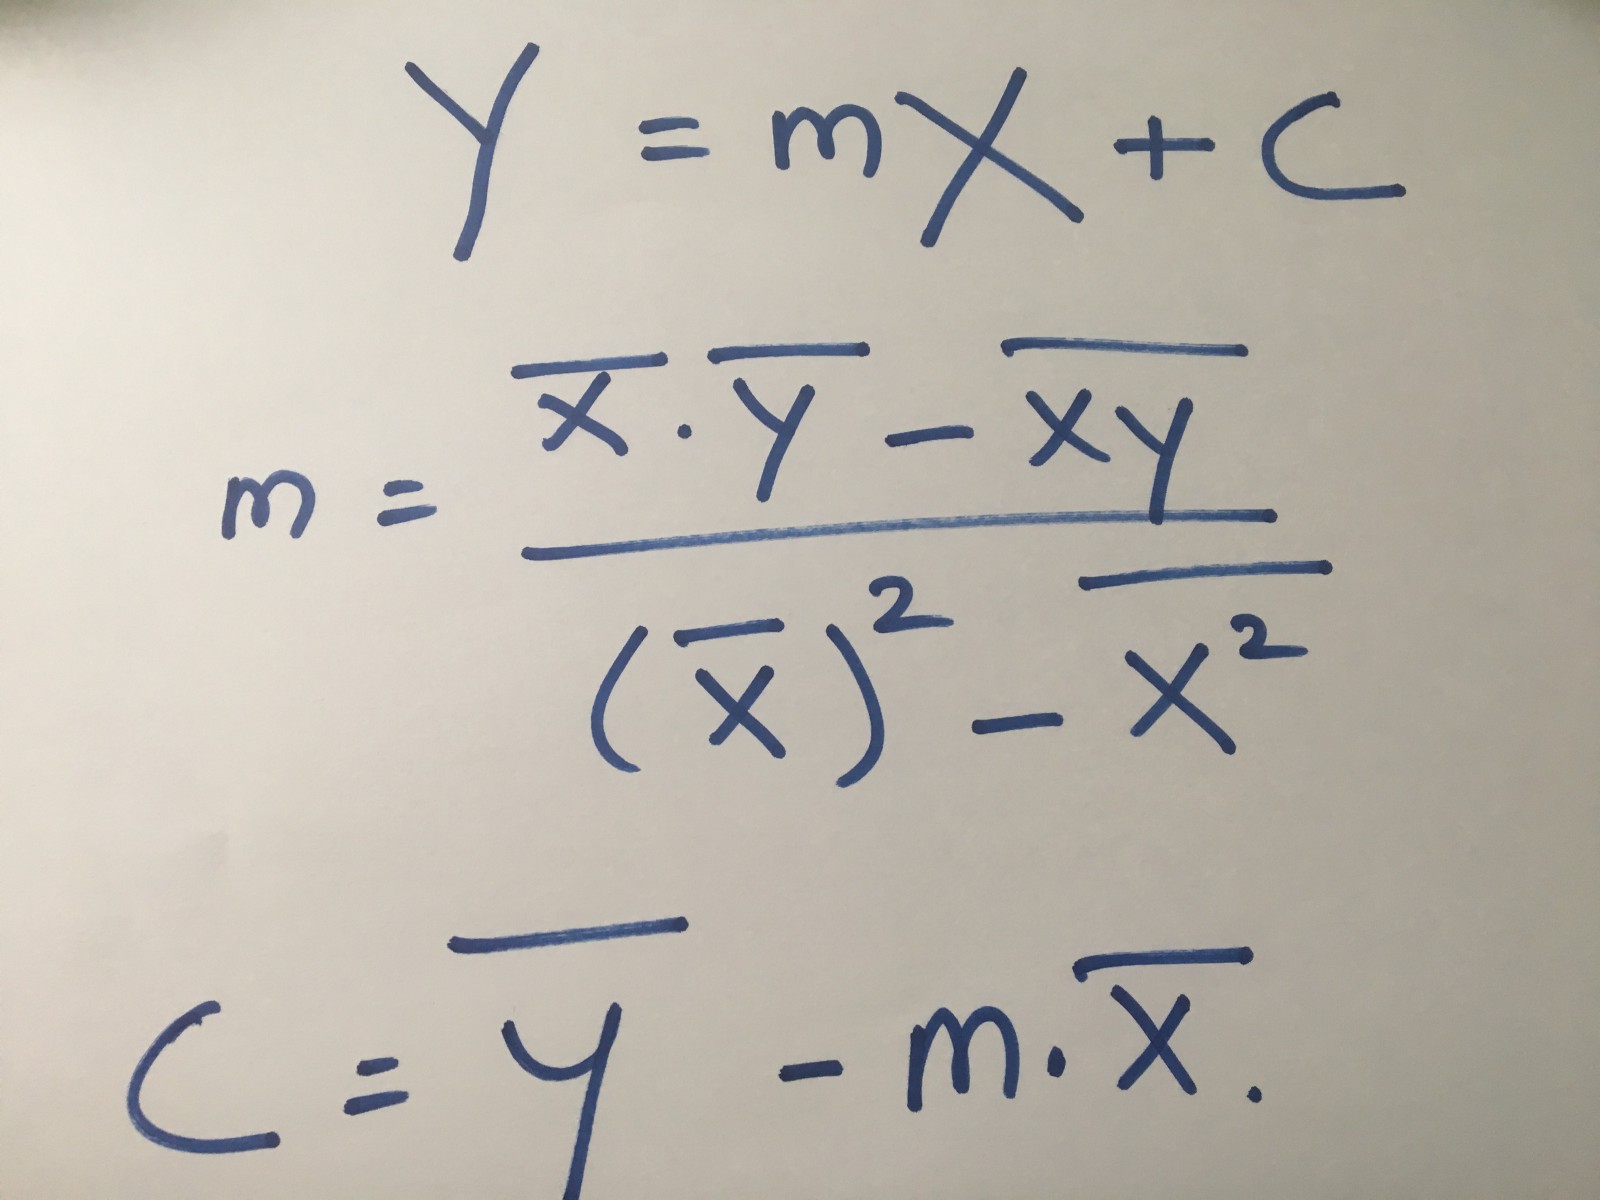 Y = mX + C
m = (x̅ . y̅ - x̅y̅) / ((x̅)² - x̅²)
C = y̅ - m . x̅ .